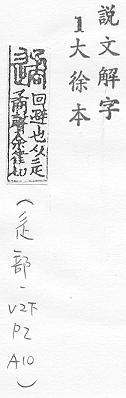 説文解字
1大徐本
遹 回避也从辵
矞聲余律切
（辵部-
V2下
P2
A10）